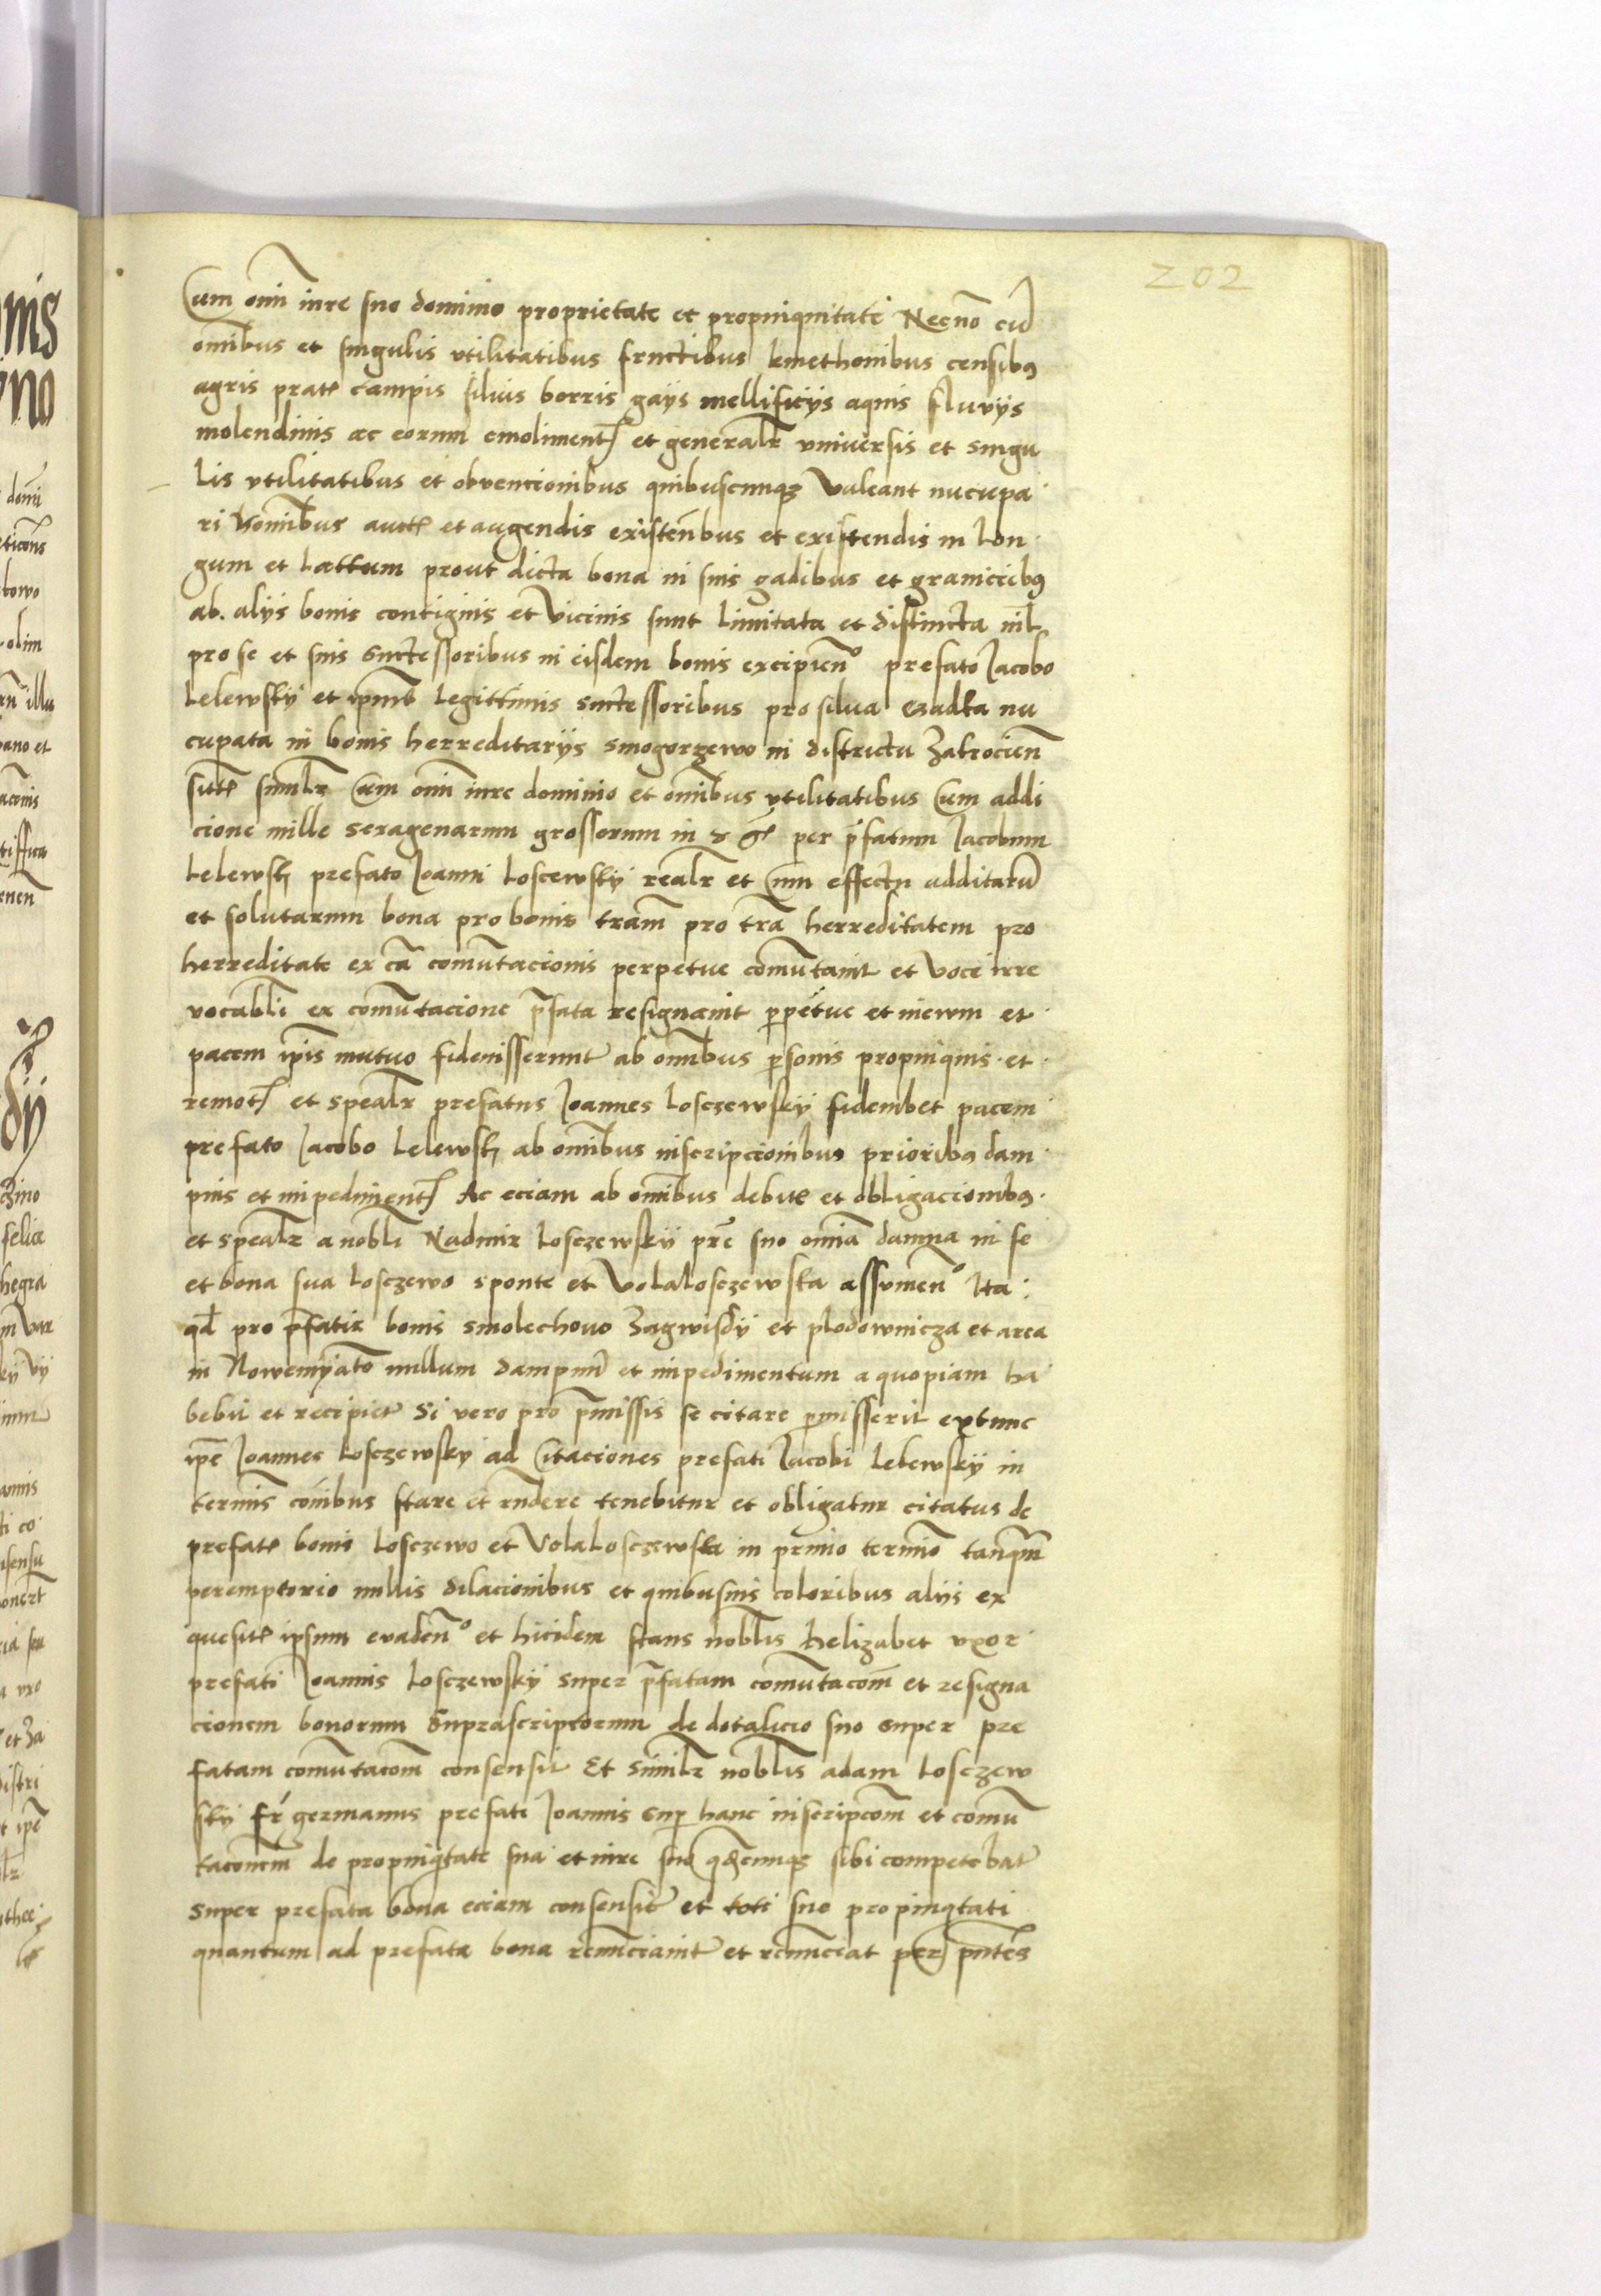 202
Cum om̄i iure suo dominio proprietate et propinquitate Necnō cū
om̄ibus et singulis vtilitatibus fructibus kmethonibus censibꝯ
agris pratꝭ campis siluis borris gays mellificijs aquis fluvijs
molendinis ac eorum emolimentꝭ et generalr̄ vniuersis et singu
lis vtilitatibus et obvencionibus quibuscunqꝫ valeant nucupa
ri nom̄ibus auctꝭ et augendis existen̄bus et existendis in lon
gum et lattum prout dicta bona in suis gadibus et granicibꝯ
ab. alijs bonis contiguis et vicinis sunt limitata et distincta nil
pro se et suis successoribus in eisdem bonis excipien̄º prefato Jacobo
Lelewsky et ip̄iu᷒ legittimis successoribus pro silua
cupata in bonis herreditarijs smogorzewo in districtu Zakrocien̄
sitꝭ similr̄ Cum om̄i iure dominio et om̄ibus vtilitatibus Cum addi
cione mille sexagenarum grossorum in per p̄fatum Jacobum
Lelewskꝭ prefato Joanni Loscewsky realr̄ et Cum effectu additarū
et solutarum bona pro bonis terram̄ pro tr̄a herreditatem pro
herreditate ex cā comūtacionis perpetue comūtauit et voce irre
vocabl̄i ex comūtacione p̄fata resignauit ꝑpetue et inewm et
pacem ip̄is mutuo fideiusserunt ab om̄ibus ꝑsonis propinquis et
remotꝭ et spealr̄ prefatus Joannes Losczewsky fideiubet pacem
prefato Jacobo Lelewskꝭ ab om̄ibus inscripcionibus prioribꝯ dam
pnis et impedimentꝭ Ac eciam ab om̄ibus debitꝭ et obligacionibꝯ
et spealr̄ a nobl̄i Nadmir Losczewsky pr̄e suo om̄ia damna in se
et bona sua Losczewo sponte et Volalosczewska assumen̄º Ita
qd̄ pro p̄fatis bonis smolechowo Zagwisdy et plodownicza et area
in Nowemyastō nullum dampnū et impedimentum a quopiam ha
bebit et recipiet Si vero pro p̄missis se citare ꝑmisserit extunc
ip̄e Joannes Losczewsky ad Citaciones prefati Jacobi Lelewsky in
termīs cōibus stare et rn̄dere tenebitur et obligatur citatus de
prefatꝭ bonis Losczewo et Volalosczewska in primo termīo tanqm̄
peremptorio nullis dilacionibus et quibusuis coloribus alijs ex
quesitꝭ ipsum evaden̄º et hicidem stans nobl̄is helizabet vxor
prefati Joannis Losczewsky super p̄fatam comūtacōm et resigna
cionem bonorum suprascriptorum de dotalicio suo super pre
fatam comūtacōm consensit Et similr̄ nobl̄is adam Losczew
sky fr̄ germanus prefati Joannis suꝑ hanc inscripcōm et comū
tacōnem de propinqͥtate sua et iure suo sibi competebat
super prefata bona eciam consensit et toti sue propinqͥtati
quantum ad prefata bona renunciauit et renunciat per pn̄tes